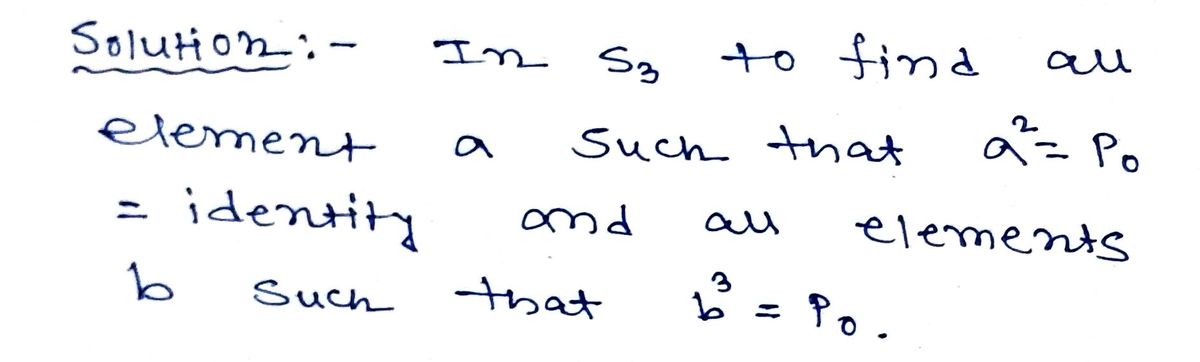 Solution:- In S₃ to find all
element a such that a² = P₀
= identity and all elements
b such that b³ = P₀.